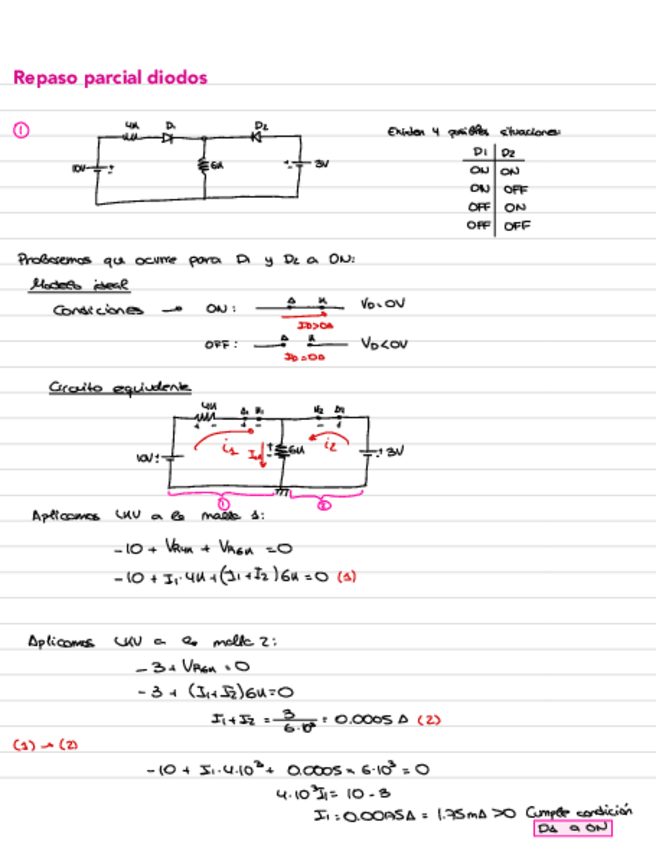 Repaso parcial diodos
①
4K D1 D2
10V 6K 3V
Existen 4 posibles situaciones
D1 D2
ON ON
ON OFF
OFF ON
OFF OFF
Probaremos que ocurre para D1 y D2 a ON:
Modelo ideal
Condiciones → ON: A K VD=0V
ID>0A
OFF: A K VD<0V
ID=0A
Circuito equivalente
4K A1 K1 K2 A2
10V i1 6K i2 3V
① ②
Aplicamos LKV a la malla 1:
-10 + VR4K + VR6K = 0
-10 + I1·4K + (I1+I2)6K = 0 (1)
Aplicamos LKV a la malla 2:
-3 + VR6K = 0
-3 + (I1+I2)6K = 0
I1+I2 = 3 / 6·10³ = 0.0005 A (2)
(1) → (2)
-10 + I1·4·10³ + 0.0005 × 6·10³ = 0
4·10³I1 = 10 - 3
I1 = 0.00175A = 1.75mA > 0 Cumple condición
D1 a ON